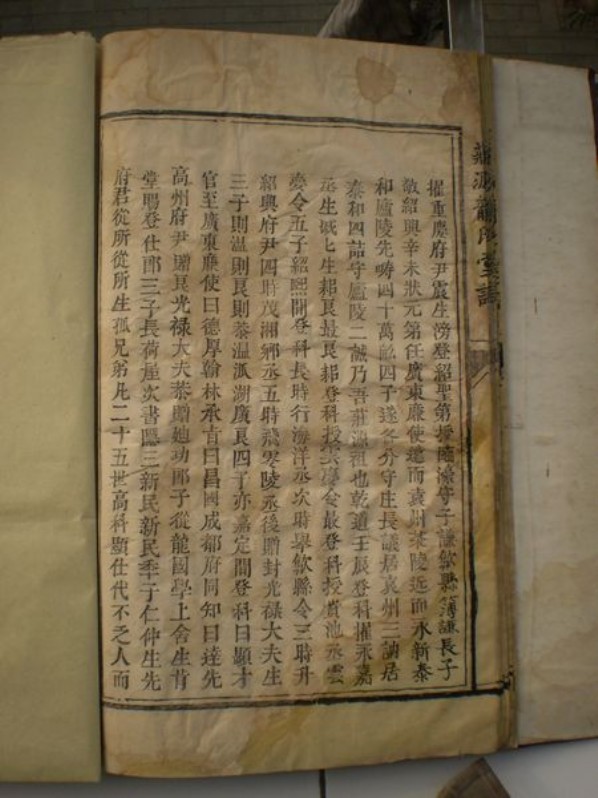 擢重慶府尹震生滂登紹聖第授臨濠守子謙歙縣簿謙長子
敏紹興辛未狀元第任廣東廉使遠而袁州茶陵近而永新泰
和廬陵先疇四十萬畝四子遂各分守庄長議居袁州三誼居
泰和四詰守廬陵二誠乃吾莊源祖也乾道壬辰登科擢永嘉
丞生試七生耜艮最艮耜登科授雲夢令最登科授貴池丞雲
夢令五子紹熙間登科長時行海洋丞次時舉歙縣令三時升
紹興府尹四時茂湘鄉丞五時飛零陵丞後贈封光祿大夫生
三子則温則良則恭温派湖廣良四子亦嘉定間登科曰顯才
官至廣東廉使曰德厚翰林承旨曰昌國成都府同知曰達先
高州府尹贈良光祿大夫恭贈廸功郎子從龍國學上舍生肯
堂賜登仕郎三子長荷屋次書隱三新民新民季子仁仲生先
府君從所從所生孤兄弟凡二十五世高科顯仕代不乏人而
源蕭氏